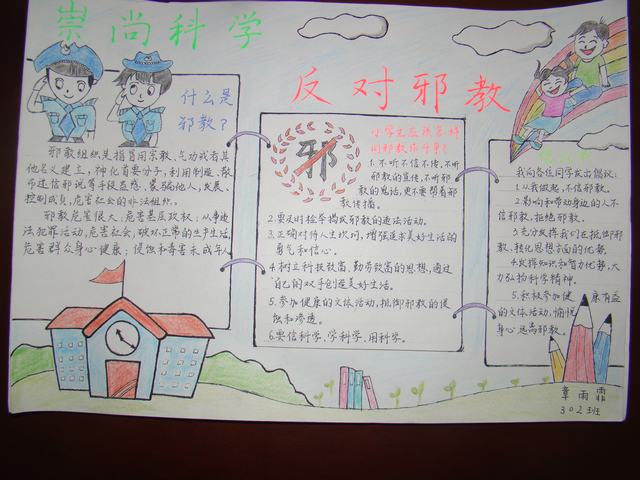 崇尚科学
反对邪教
什么是
邪教?
邪教组织是指冒用宗教、气功或者其
他名义建立,神化首要分子,利用制造、散
布迷信邪说等手段蛊惑、蒙骗他人,发展、
控制成员,危害社会的非法组织。
邪教危害很大:危害基层政权;从事违
法犯罪活动,危害社会,破坏正常的生产生活,
危害群众身心健康;侵蚀和毒害未成年人
邪
小学生应该怎样
同邪教作斗争?
1.不听不信不传。不听邪
教的宣传,不听邪
教的鬼话,更不要帮着邪
教传播。
2.要及时检举揭发邪教的违法活动。
3.正确对待人生坎坷,增强追求美好生活的
勇气和信心。
4.树立科技致富、勤劳致富的思想,通过
自己的双手创造美好生活。
5.参加健康的文体活动,抵御邪教的侵
蚀和渗透。
6.要信科学、学科学、用科学。
倡议书
我向各位同学发出倡议:
1.从我做起,不信邪教。
2.影响和带动身边的人不
信邪教,拒绝邪教。
3.充分发挥我们在抵御邪
教、转化思想方面的优势。
4.发挥知识和智力优势,大
力弘扬科学精神。
5.积极参加健康有益
的文体活动,愉悦
身心,远离邪教。
章雨霏
302班